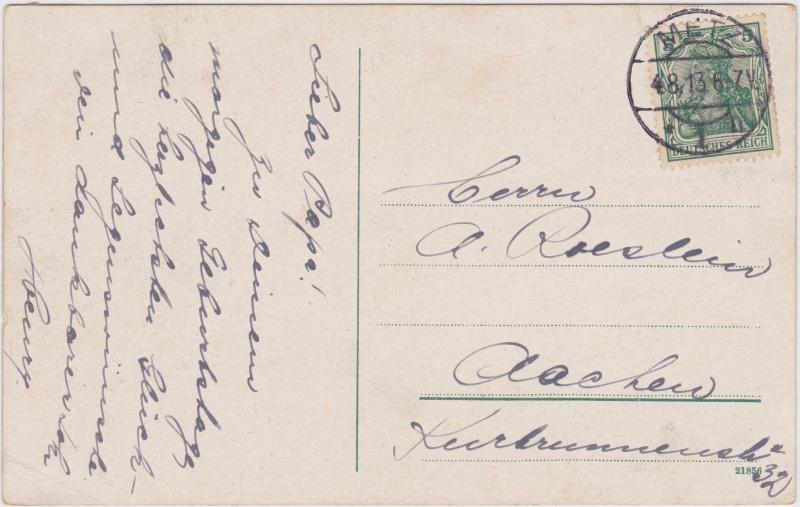 Lieber Papa!
Zu Deinem
morgigen Geburtstage
die herzlichsten Glück-
und Segenswünsche
Dein dankbarer Sohn
METZ
5
4.8.13.6-7V.
DEUTSCHES REICH
Herrn
A. Roeslein
Aachen
Kurbrunnenstr
32
21856